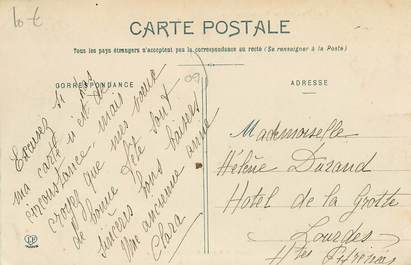 lot
CARTE POSTALE
Tous les pays étrangers n'acceptent pas la correspondance au recto (Se renseigner à la poste)
CORRESPONDANCE
09
Excusez si pas
ma carte n'est de
circonstance mais
croyez que mes vœux
de bonne fête sont
sincères bons baisers
Une ancienne amie
Clara
ADRESSE
Mademoiselle
Hélène Durand
Hotel de la Grotte
Lourdes
Htes Pyrénées